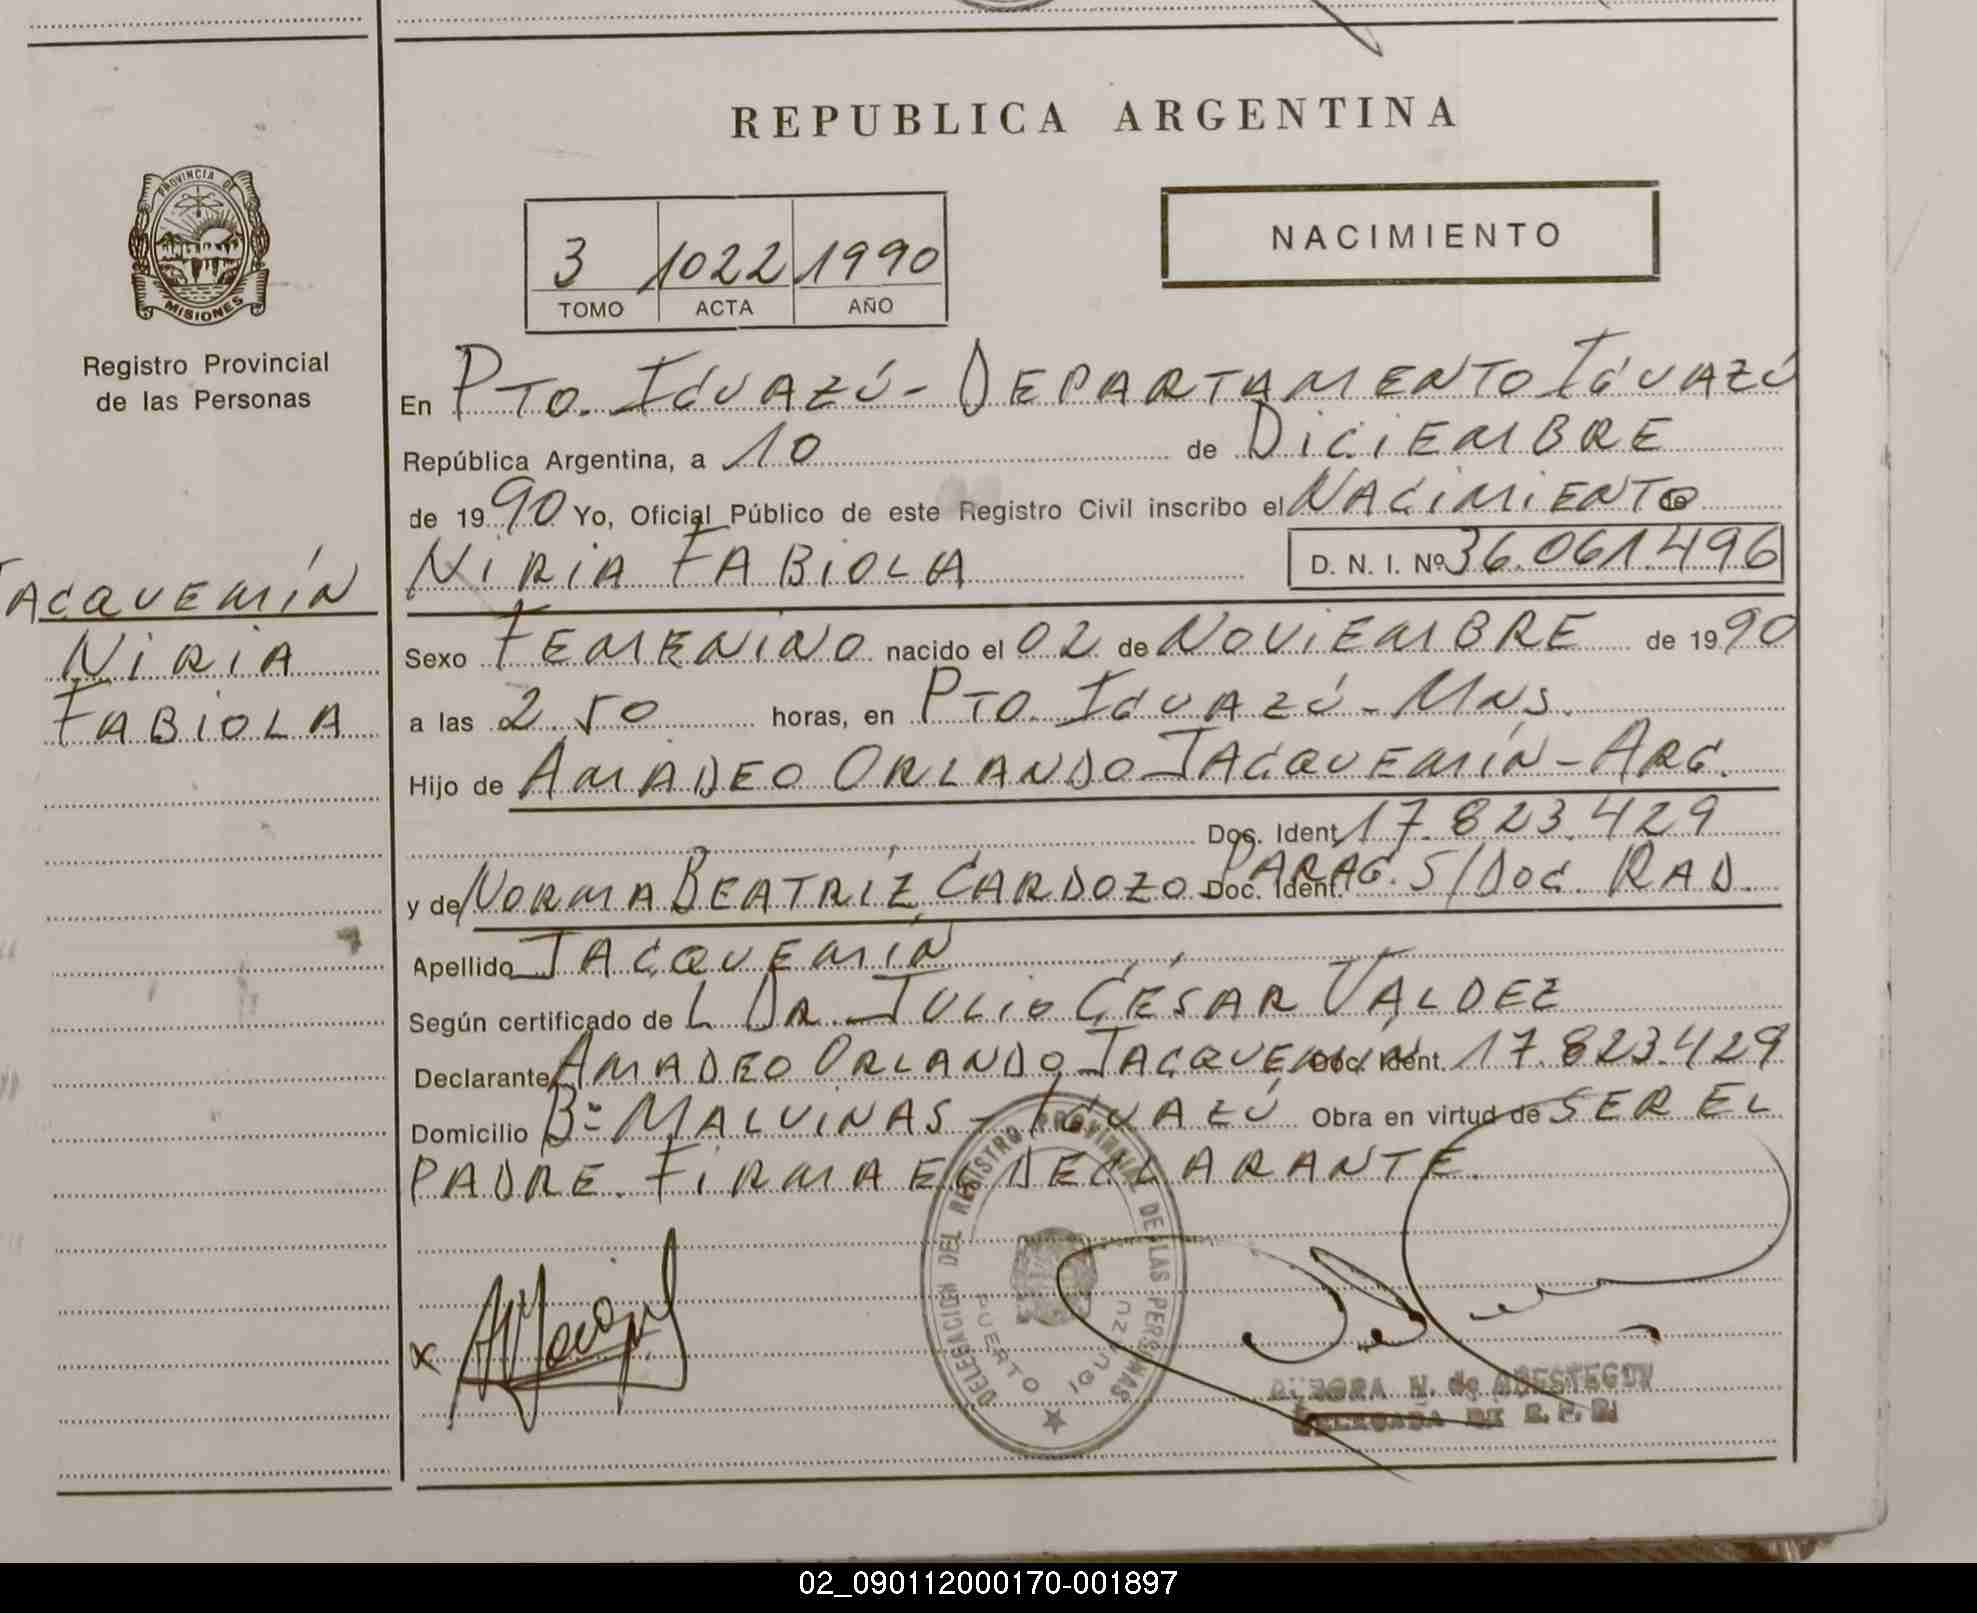 REPUBLICA ARGENTINA
PROVINCIA DE
MISIONES
Registro Provincial
de las Personas
3 1022 1990
TOMO ACTA AÑO
NACIMIENTO
JACQUEMÍN
NIRIA
FABIOLA
En PTO. IGUAZÚ - DEPARTAMENTO IGUAZÚ
República Argentina, a 10 de DICIEMBRE
de 1990 Yo, Oficial Público de este Registro Civil inscribo el NACIMIENTO de
NIRIA FABIOLA D. N. I. Nº 36.061.496
Sexo FEMENINO nacido el 02 de NOVIEMBRE de 1990
a las 2.50 horas, en PTO. IGUAZÚ - MNS.
Hijo de AMADEO ORLANDO JACQUEMÍN - ARG.
Doc. Ident. 17.823.429
y de NORMA BEATRÍZ CARDOZO PARAG. Doc. Ident. S/DOC. RAD.
Apellido JACQUEMÍN
Según certificado de L DR. JULIO CÉSAR VALDEZ
Declarante AMADEO ORLANDO JACQUEMÍN Doc. Ident. 17.823.429
Domicilio Bº MALVINAS - IGUAZÚ Obra en virtud de SER EL
PADRE. FIRMA EL DECLARANTE.
DELEGACION DEL REGISTRO PROVINCIAL DE LAS PERSONAS
PUERTO IGUAZU
x
AURORA N. de
DELEGADA
02_090112000170-001897